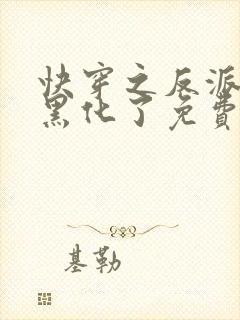 快穿之反派
黑化了免費
基勒